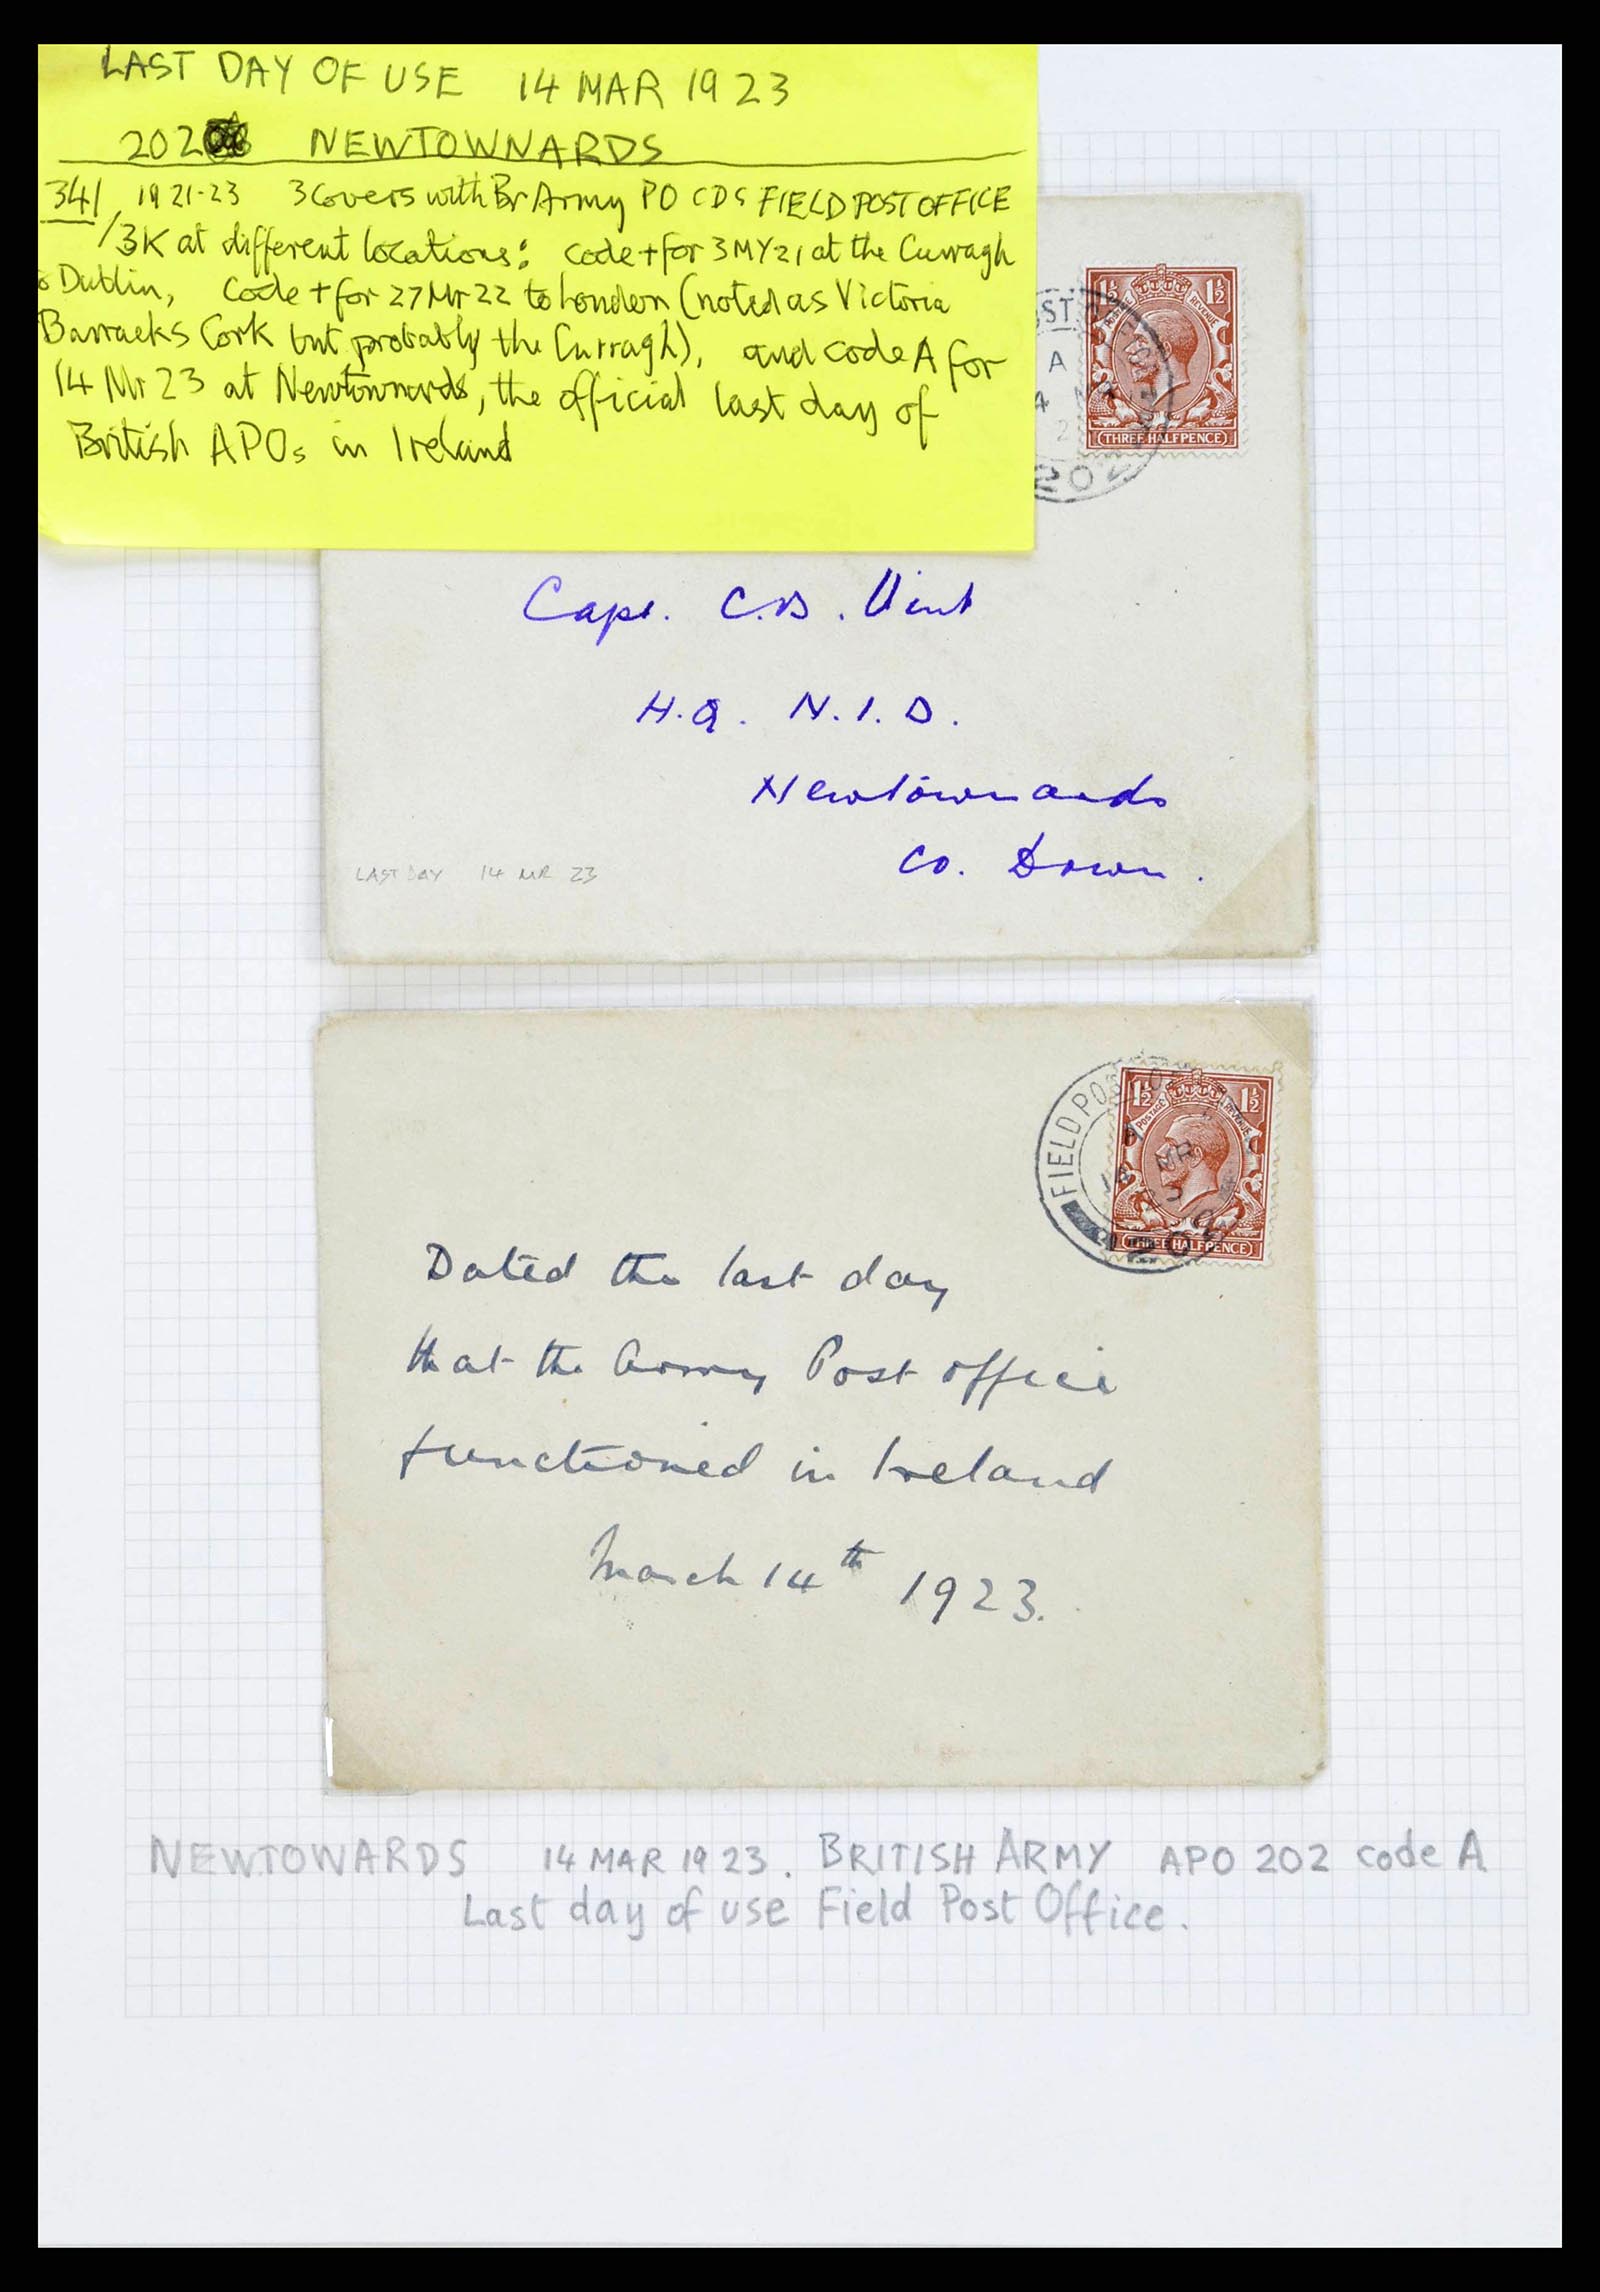 LAST DAY OF USE 14 MAR 1923
202 NEWTOWNARDS
341 1921-23 3 Covers with Br Army PO CDS FIELD POST OFFICE
/3K at different locations: code + for 3MY21 at the Curragh
to Dublin, Code + for 27Mr22 to London (noted as Victoria
Barracks Cork but probably the Curragh), and code A for
14 Mr 23 at Newtownards, the official last day of
British APOs in Ireland
ST
A
4
2
202
1½ 1½
POSTAGE REVENUE
THREE HALFPENCE
Capt. C.B. Vint
H.Q. N.I.D.
Newtownards
Co. Down.
LAST DAY 14 MR 23
FIELD POST
MR
1½ 1½
POSTAGE REVENUE
THREE HALFPENCE
Dated the last day
that the Army Post office
functioned in Ireland
March 14th 1923.
NEWTOWARDS 14 MAR 1923. BRITISH ARMY APO 202 code A
Last day of use Field Post Office.